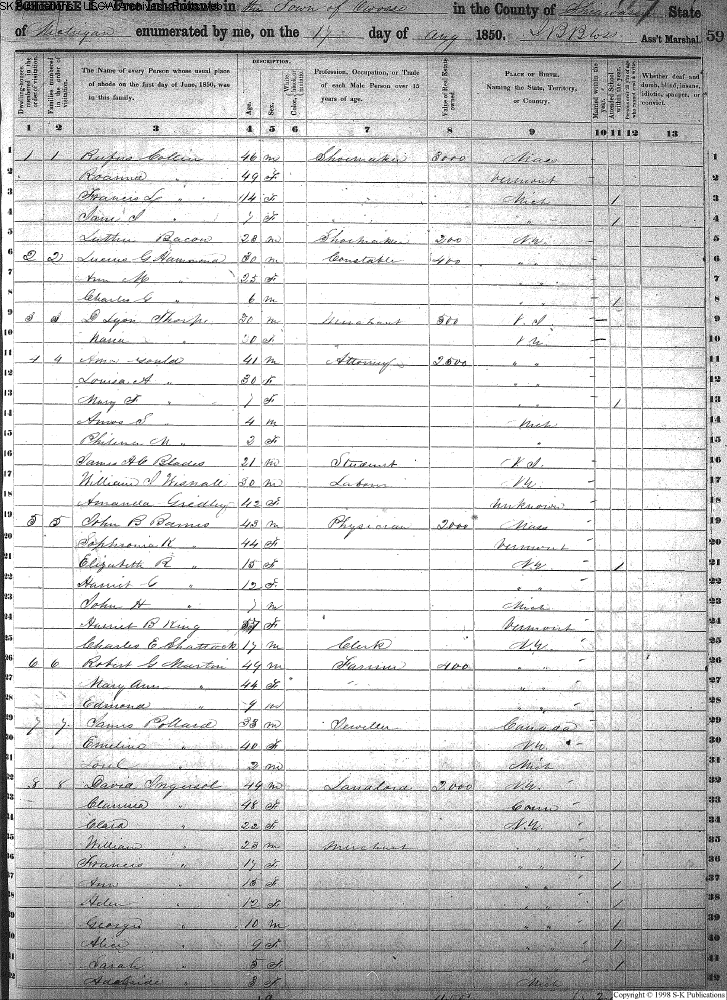 SCHEDULE I. Free Inhabitants in the Town of Owosso in the County of Shiawassee State
of Michigan enumerated by me, on the 17 day of Aug 1850. Ass't Marshal. 59
DESCRIPTION.
Dwelling-houses numbered in the order of visitation.
Families numbered in the order of visitation.
The Name of every Person whose usual place of abode on the first day of June, 1850, was in this family.
Age.
Sex.
Color,
Profession, Occupation, or Trade of each Male Person over 15 years of age.
Value of Real Estate owned.
PLACE OF BIRTH. Naming the State, Territory, or Country.
Married within the year.
Attended School within the year.
Whether deaf and dumb, blind, insane, idiotic, pauper, or convict.
1 2 3 4 5 6 7 8 9 10 11 12 13
1 1 1 Rufus Collin 46 m Shoemaker 3000 Mass 1
2 Roanna " 49 F Vermont 2
3 Francis L " 14 F Mich 1 3
4 Jane " 7 F " " 1 4
5 Luther Bacon 23 m Shoemaker 200 N.Y. 5
6 2 2 Lucius G Hammond 30 m Constable 400 " " 6
7 Ann M " 25 F " " 7
8 Charles G " 6 m " " 1 8
9 3 3 D Lyon Thorpe 30 m Merchant 500 9
10 " F 10
11 4 4 Gould 41 m Attorney 2500 " " 11
12 Louisa A " 30 F " " 12
13 Mary F " 7 F " " 1 13
14 Amos S " 4 m Mich 14
15 Philena M " 2 F " 15
16 James Blades 21 m Student 16
17 William J Wisnall 30 m Labour N.Y. 17
18 Amanda Gridley 42 F Unknown 18
19 5 5 John B Barnes 43 m Physician 2000 Mass 19
20 Sophronia K " 44 F Vermont 20
21 Elizabeth R " 15 F N.Y. 1 21
22 Harriet C " 12 F " " 22
23 John H " 7 m Mich 23
24 Harriet B King 57 F Vermont 24
25 Charles E Shattuck 17 m Clerk N.Y. 25
26 6 6 Robert G Martin 49 m Farmer 400 " " 26
27 Mary Ann " 44 F " " 27
28 Edmond " 9 m " " 28
29 7 7 James Pollard 33 m Jeweller Canada 29
30 Emeline " 40 F N.Y. 30
31 " 2 m Mich
32 8 8 David Ingersol 49 m Landlord 2.000 N.Y. 32
33 Clarissa " 48 F Conn 33
34 Clara " 22 F N.Y. 34
35 William " 23 m Merchant " " 35
36 Francis " 17 F " " 1 36
37 Ann " 15 F " " 1
38 " 12 F " " 1
39 George " 10 m " " 1 39
40 Alice " 9 F " " 1 40
41 Sarah " 5 F " " 1 41
42 Adelaide " 3 F Mich 42
Copyright © 1998 S-K Publications